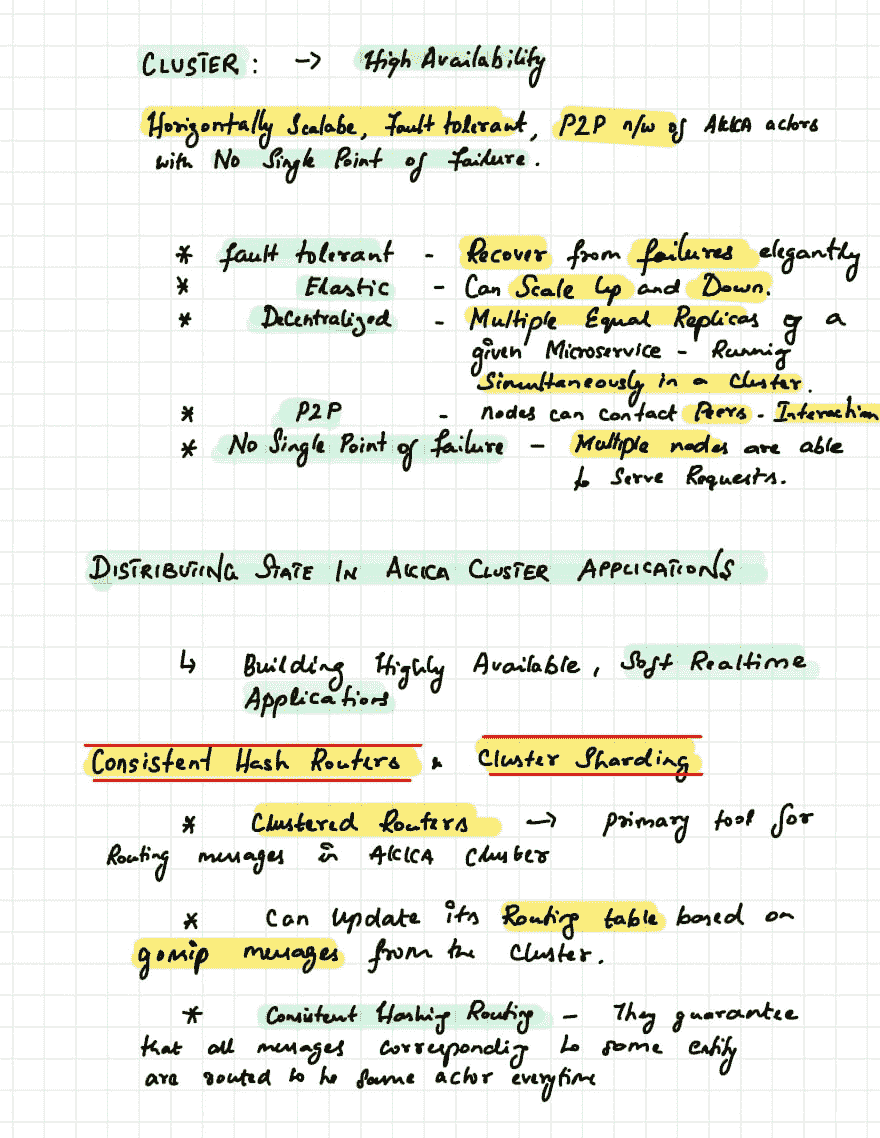 CLUSTER : → High Availability
Horizontally Scalabe, Fault tolerant, P2P n/w of AKKA actors
with No Single Point of Failure.
* fault tolerant - Recover from failures elegantly
* Elastic - Can Scale Up and Down.
* Decentralized - Multiple Equal Replicas of a
given Microservice - Running
Simultaneously in a Cluster.
* P2P - nodes can contact Peers - Interaction
* No Single Point of failure - Multiple nodes are able
to Serve Requests.
DISTRIBUTING STATE IN AKKA CLUSTER APPLICATIONS
↳ Building Highly Available, Soft Realtime
Applications
Consistent Hash Routers & Cluster Sharding
* Clustered Routers → primary tool for
Routing messages in AKKA Cluster
* Can Update its Routing table based on
gossip messages from the Cluster.
* Consistent Hashing Routing - They guarantee
that all messages corresponding to some entity
are routed to he same actor everytime